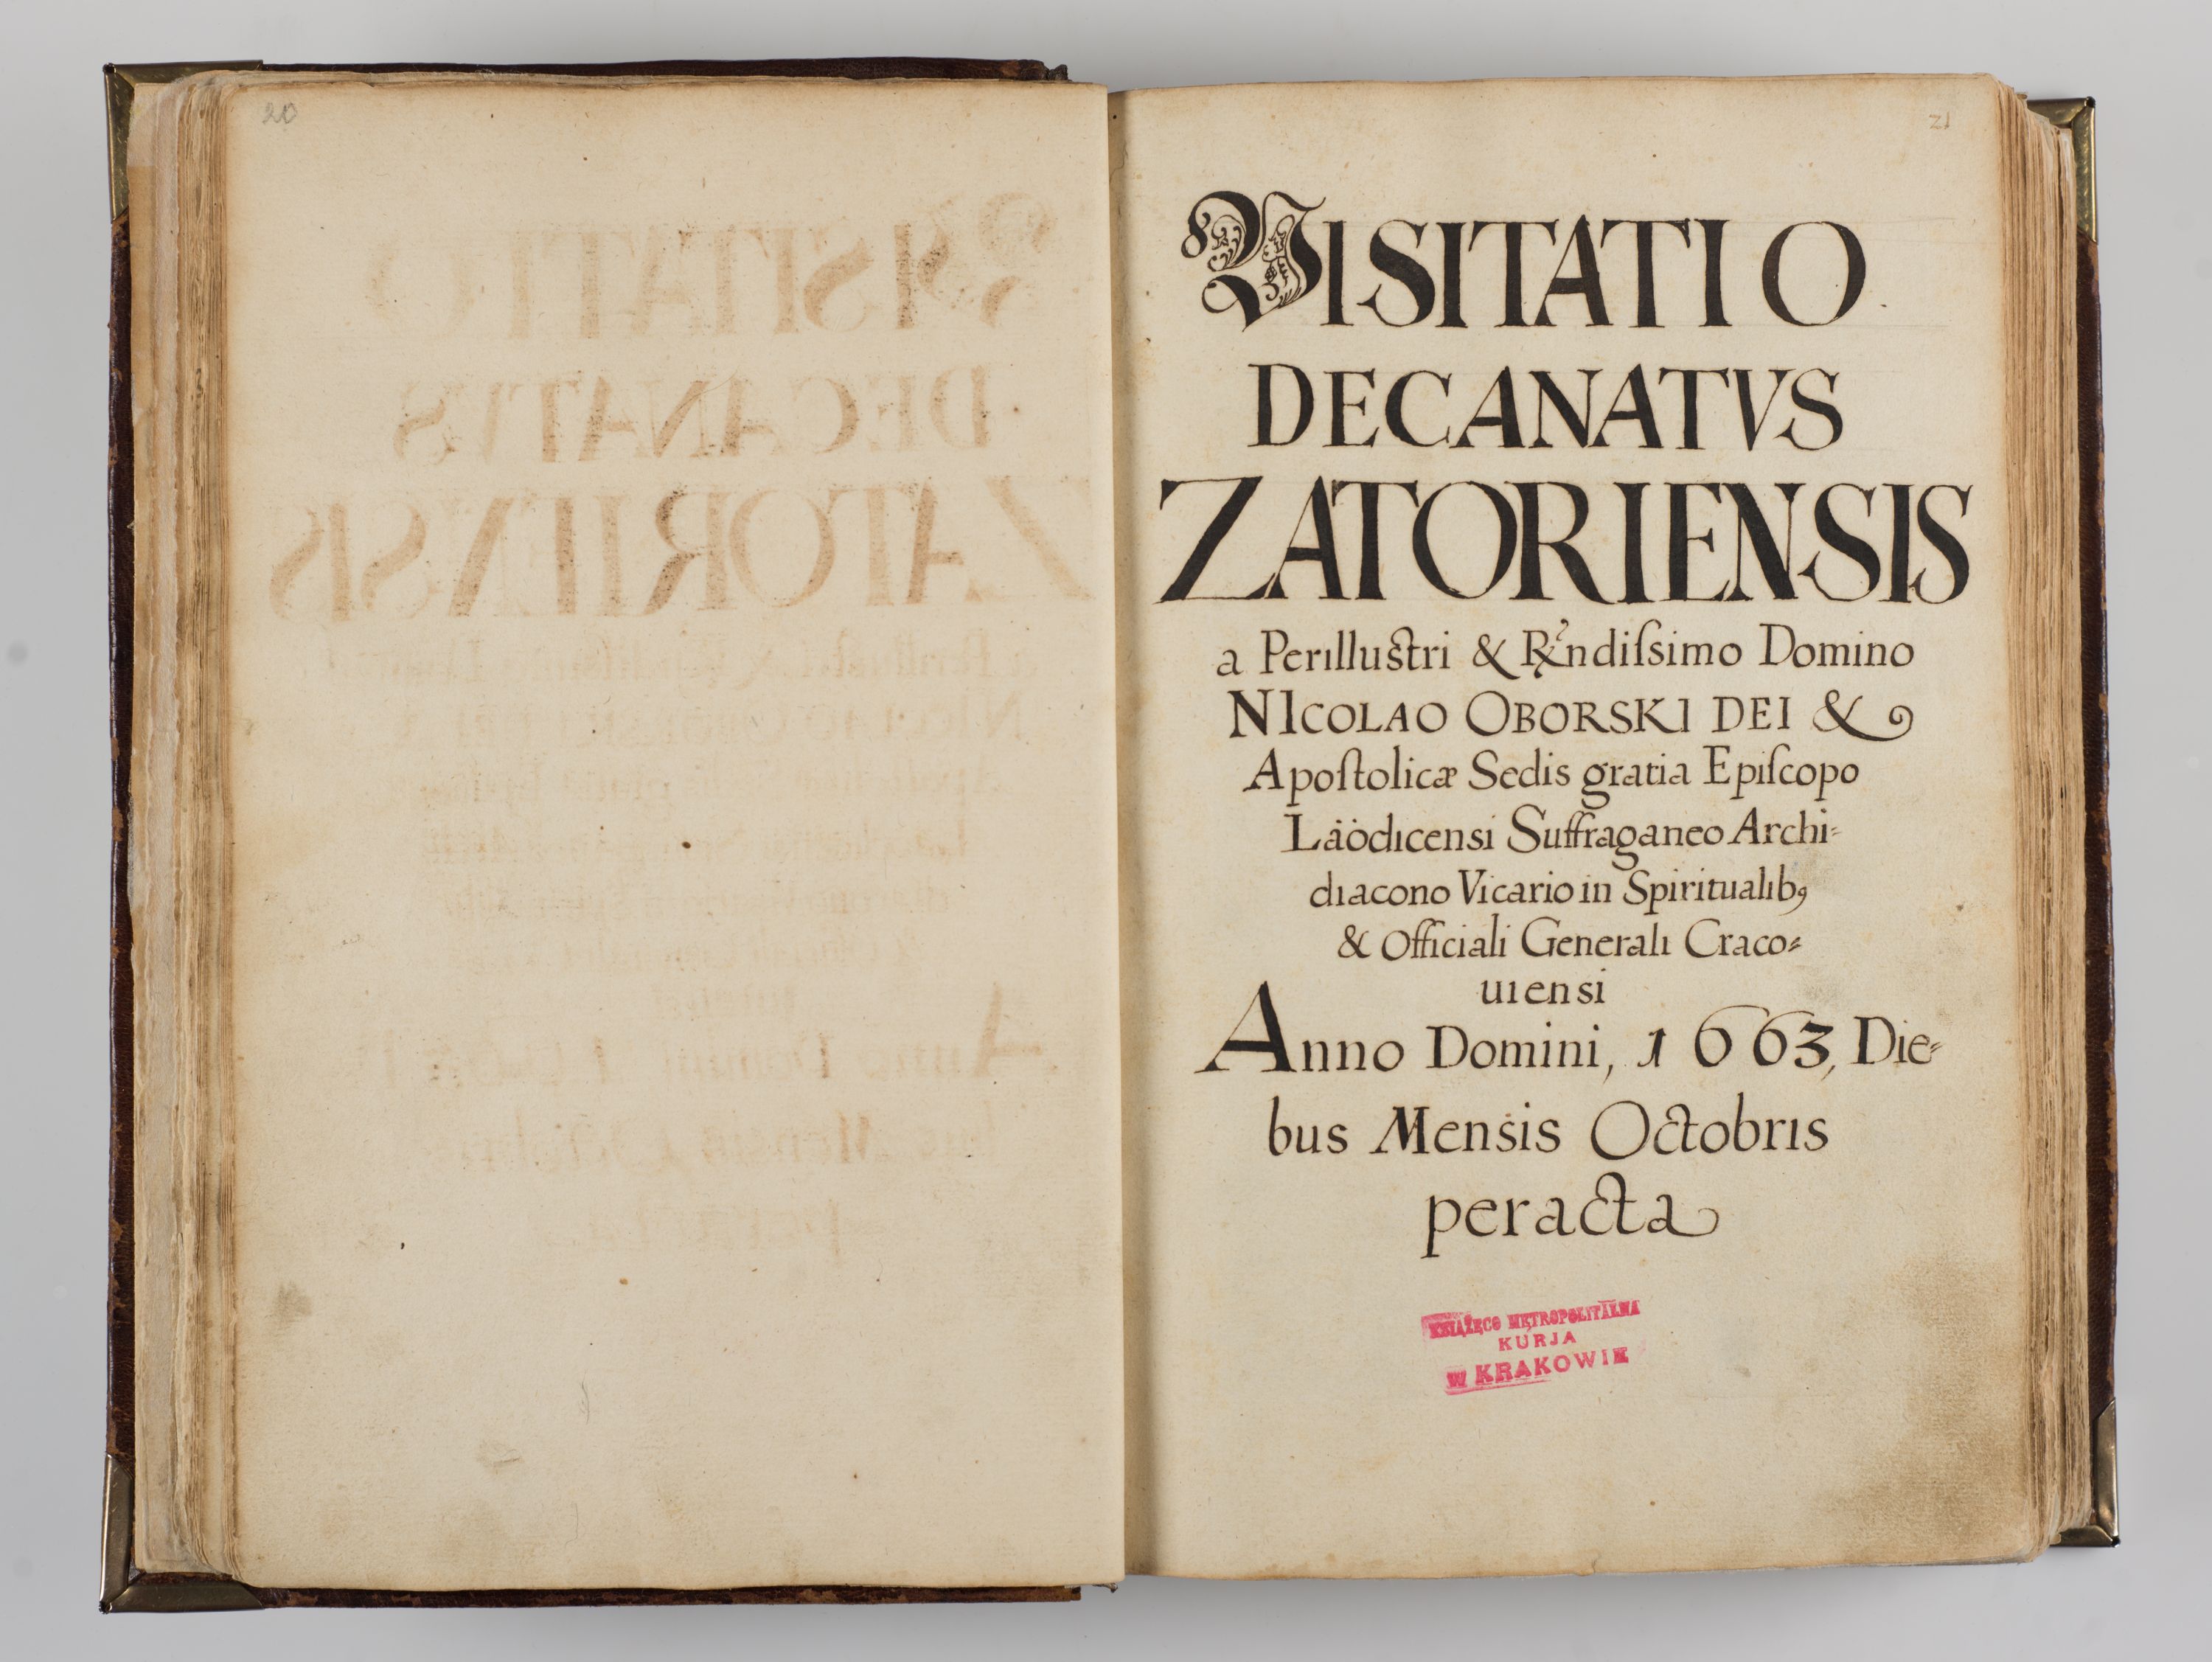 20
21
VISITATIO
DECANATVS
ZATORIENSIS
a Perillustri & Rndiſsimo Domino
NICOLAO OBORSKI DEI &
Apoſtolicæ Sedis gratia Epiſcopo
Läödicensi Suffraganeo Archi=
diacono Vicario in Spiritualibꝰ
& Officiali Generali Craco=
uiensi
Anno Domini, 1663, Die=
bus Mensis Octobris
peracta
KSIĄŻĘCO METROPOLITALNA
KURJA
W KRAKOWIE